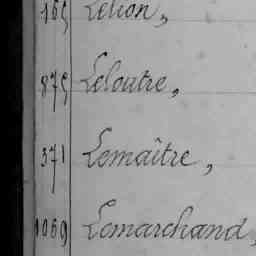 165 Lelion,
875 Leloutre,
371 Lemaître,
1069 Lemarchand,